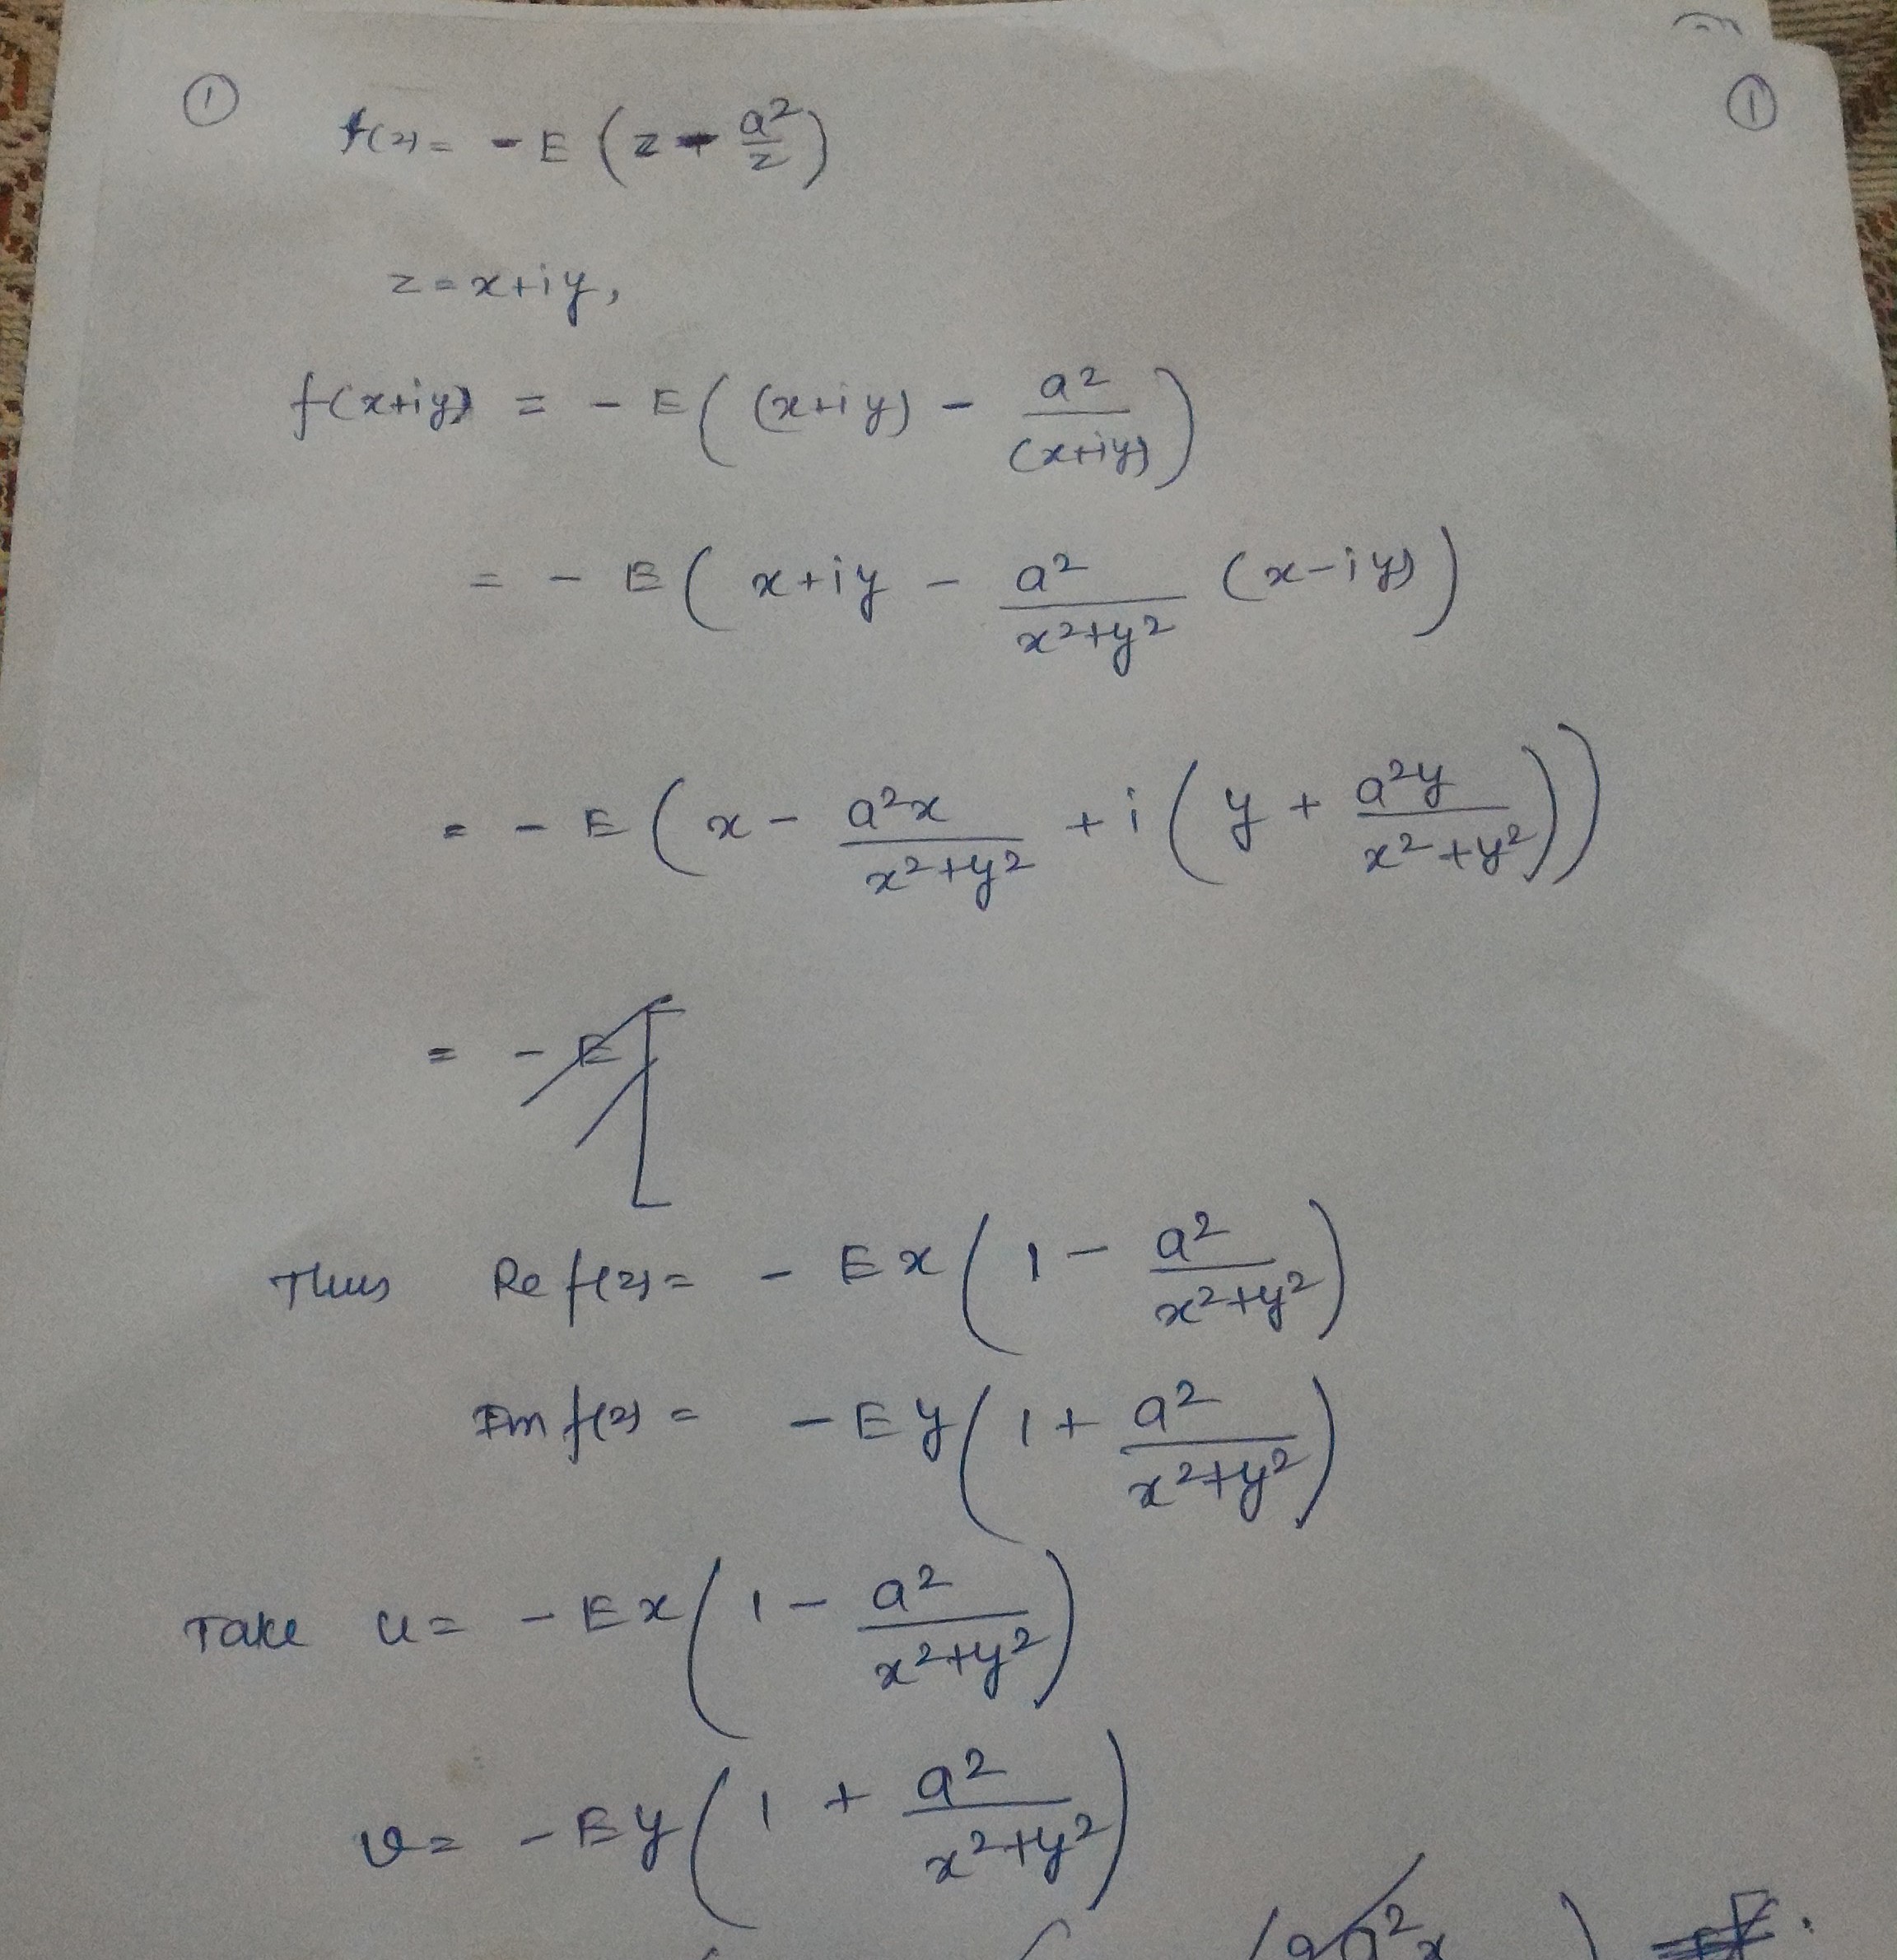 ① ①
f(z) = - E (z - a²/z)
z = x+iy,
f(x+iy) = - E ( (x+iy) - a²/(x+iy) )
= - E ( x+iy - a²/(x²+y²) (x-iy) )
= - E ( x - a²x/(x²+y²) + i ( y + a²y/(x²+y²) ) )
= - E [
Thus Re f(z) = - E x ( 1 - a²/(x²+y²) )
Im f(z) = - E y ( 1 + a²/(x²+y²) )
Take u = - E x ( 1 - a²/(x²+y²) )
v = - E y ( 1 + a²/(x²+y²) )